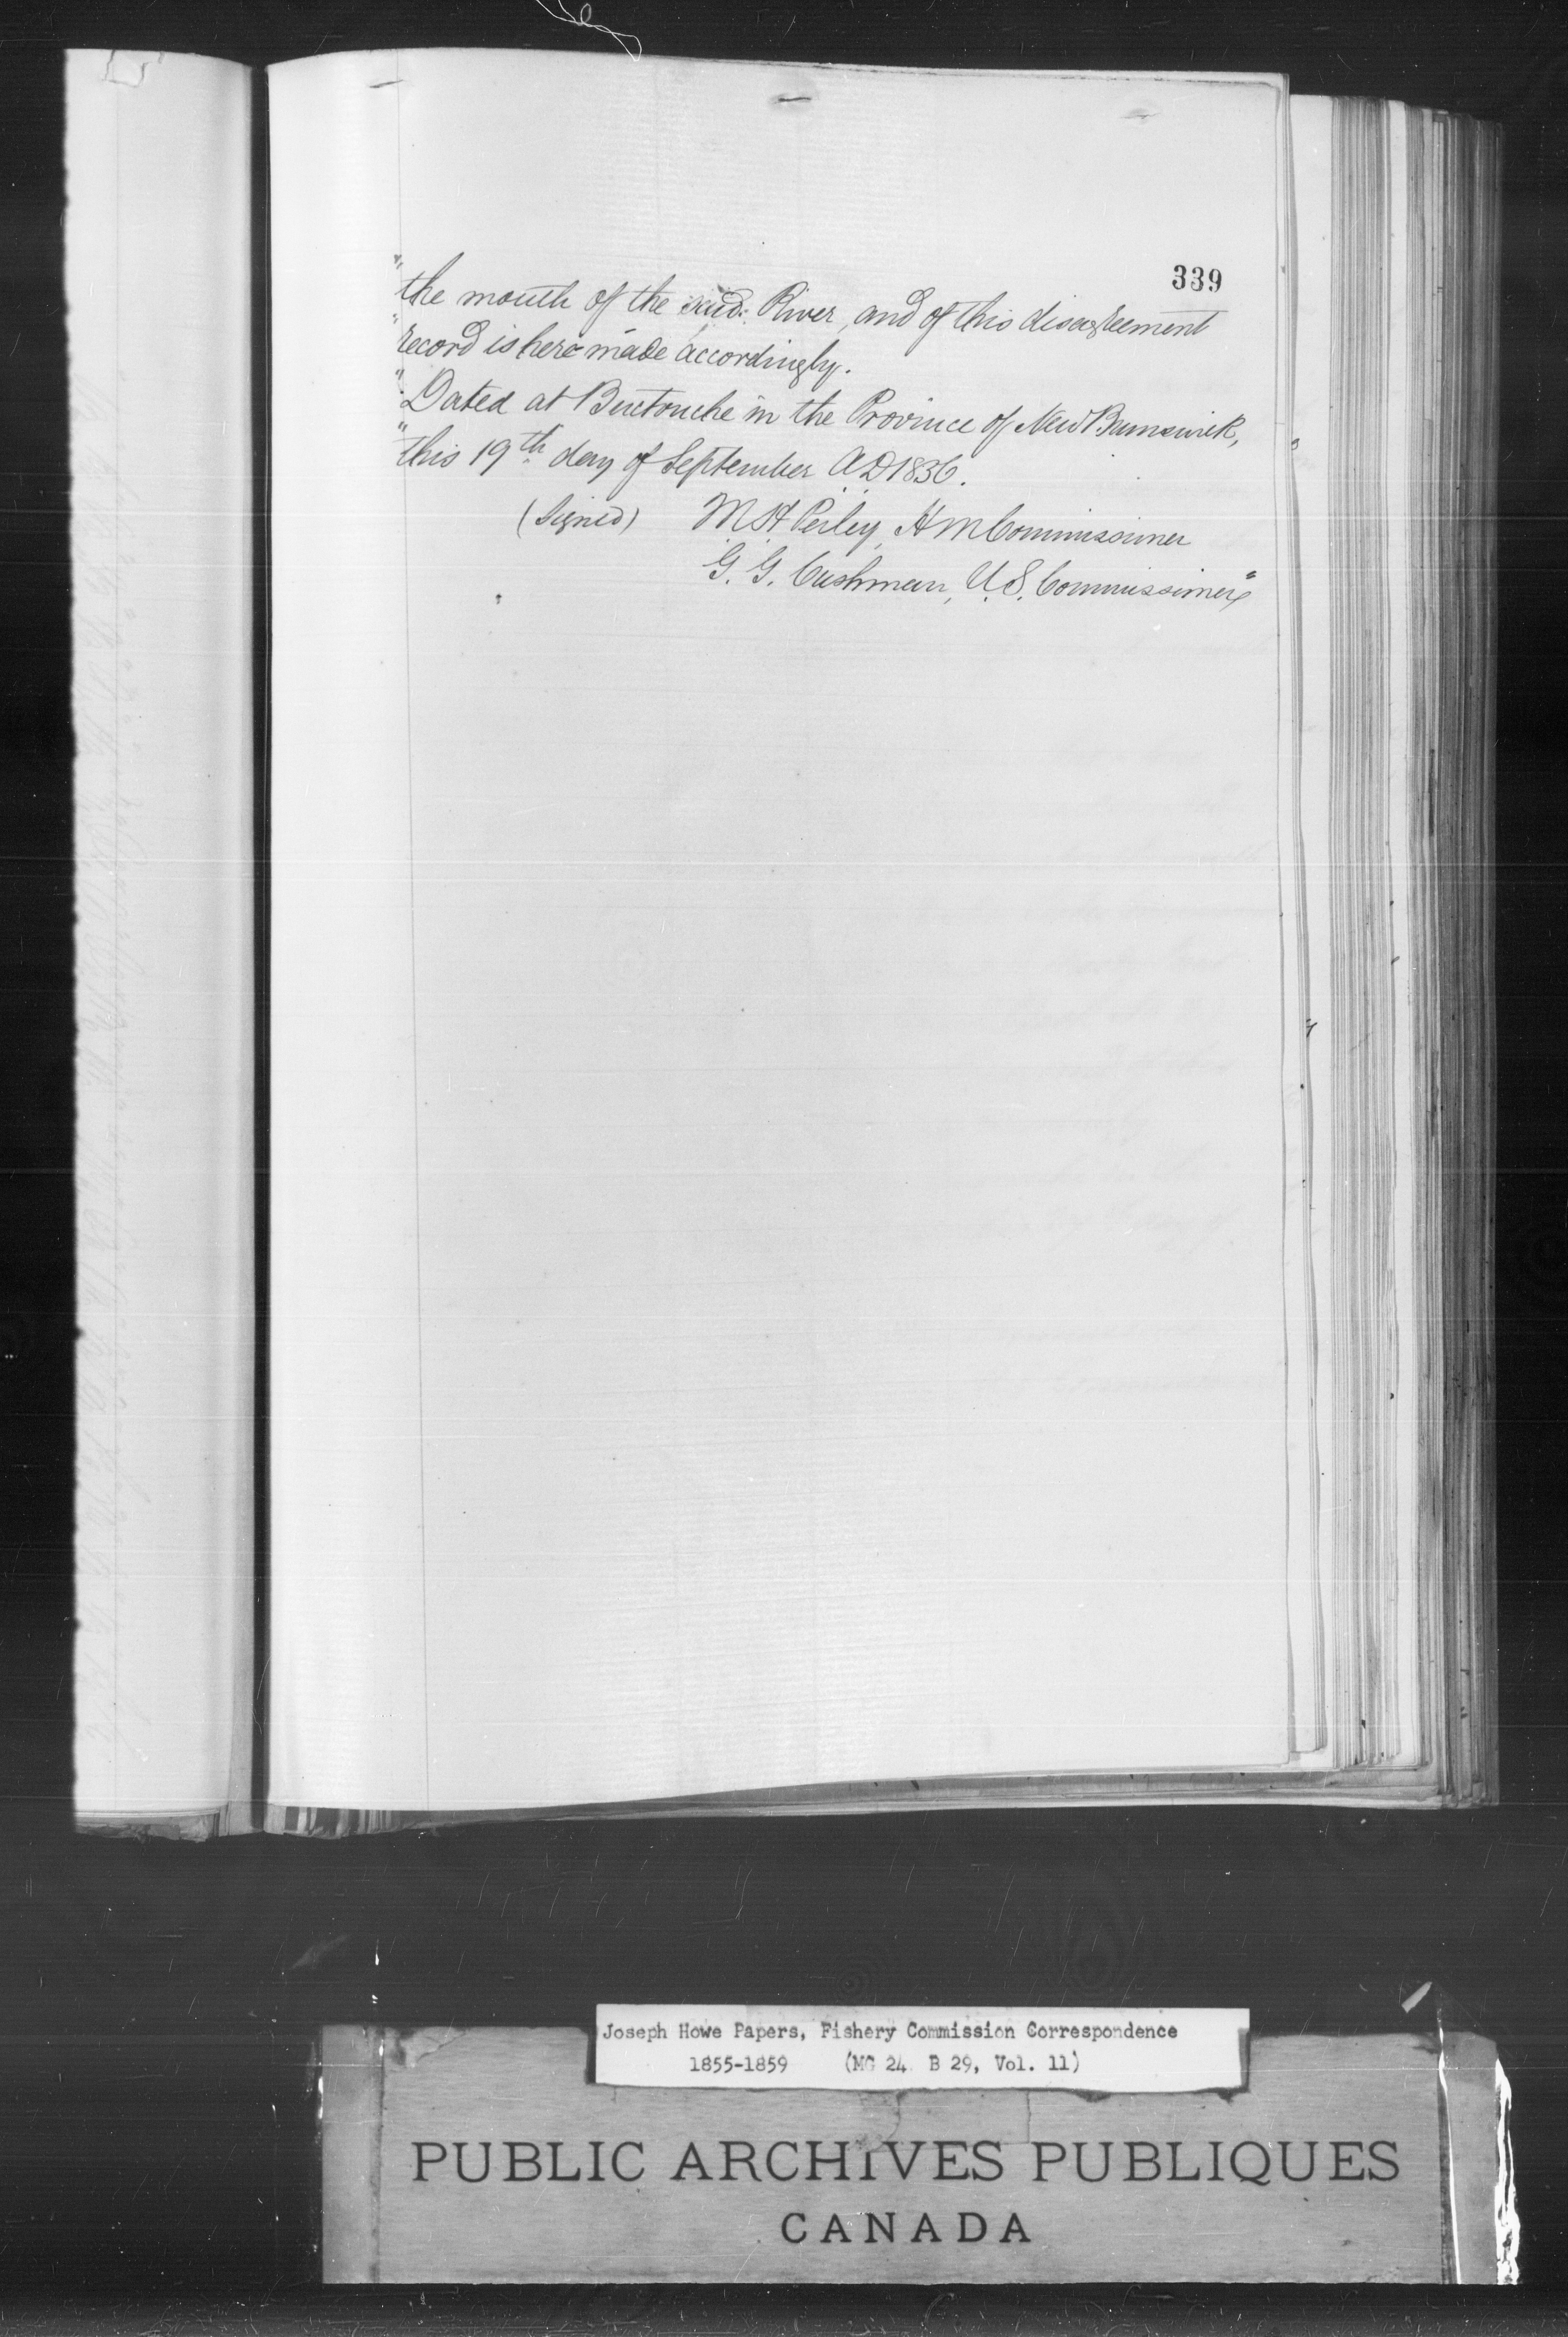 339
"the mouth of the said River, and of this disagreement
"record is here made accordingly.
"Dated at Buctouche in the Province of New Brunswick,
"this 19th day of September A.D 1836.
(Signed) M H Perley, H M Commissioner
G. G. Cushman, U. S. Commissioner"
Joseph Howe Papers, Fishery Commission Correspondence
1855-1859 (MG 24 B 29, Vol. 11)
PUBLIC ARCHIVES PUBLIQUES
CANADA